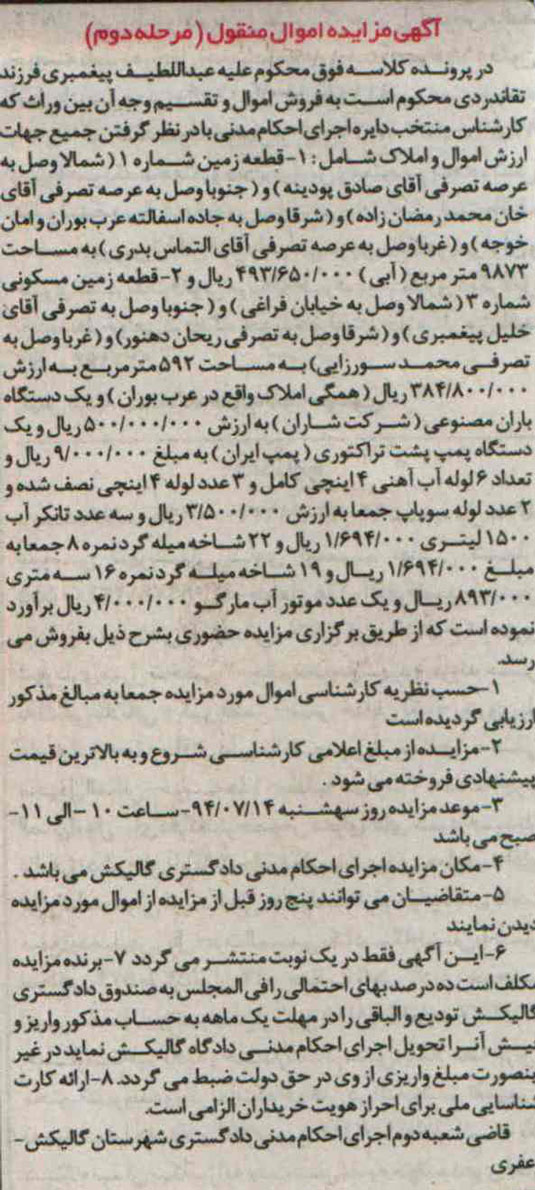 آگهی مزایده اموال منقول (مرحله دوم)
در پرونده کلاسه فوق محکوم علیه عبداللطیف پیغمبری فرزند
تقاندردی محکوم است به فروش اموال و تقسیم وجه آن بین وراث که
کارشناس منتخب دایره اجرای احکام مدنی با در نظر گرفتن جمیع جهات
ارزش اموال و املاک شامل: ۱- قطعه زمین شماره ۱ (شمالا وصل به
عرصه تصرفی آقای صادق پودینه) و (جنوبا وصل به عرصه تصرفی آقای
خان محمد رمضان زاده) و (شرقا وصل به جاده اسفالته عرب بوران و امان
خوجه) و (غربا وصل به عرصه تصرفی آقای التماس بدری) به مساحت
۹۸۷۳ متر مربع (آبی) ۴۹۳/۶۵۰/۰۰۰ ریال و ۲- قطعه زمین مسکونی
شماره ۳ (شمالا وصل به خیابان فراغی) و (جنوبا وصل به تصرفی آقای
خلیل پیغمبری) و (شرقا وصل به تصرفی ریحان دهنور) و (غربا وصل به
تصرفی محمد سورزایی) به مساحت ۵۹۲ متر مربع به ارزش
۳۸۴/۸۰۰/۰۰۰ ریال (همگی املاک واقع در عرب بوران) و یک دستگاه
باران مصنوعی (شرکت شاران) به ارزش ۵۰۰/۰۰۰/۰۰۰ ریال و یک
دستگاه پمپ پشت تراکتوری (پمپ ایران) به مبلغ ۹/۰۰۰/۰۰۰ ریال و
تعداد ۶ لوله آب آهنی ۴ اینچی کامل و ۳ عدد لوله ۴ اینچی نصف شده و
۲ عدد لوله سوپاپ جمعا به ارزش ۳/۵۰۰/۰۰۰ ریال و سه عدد تانکر آب
۱۵۰۰ لیتری ۱/۶۹۴/۰۰۰ ریال و ۲۲ شاخه میله گرد نمره ۸ جمعا به
مبلغ ۱/۶۹۴/۰۰۰ ریال و ۱۹ شاخه میله گرد نمره ۱۶ سه متری
۸۹۳/۰۰۰ ریال و یک عدد موتور آب مارگو ۴/۰۰۰/۰۰۰ ریال برآورد
نموده است که از طریق برگزاری مزایده حضوری بشرح ذیل بفروش می
رسد.
۱- حسب نظریه کارشناسی اموال مورد مزایده جمعا به مبالغ مذکور
ارزیابی گردیده است
۲- مزایده از مبلغ اعلامی کارشناسی شروع و به بالاترین قیمت
پیشنهادی فروخته می شود.
۳- موعد مزایده روز سهشنبه ۹۴/۰۷/۱۴- ساعت ۱۰ - الی ۱۱-
صبح می باشد
۴- مکان مزایده اجرای احکام مدنی دادگستری گالیکش می باشد.
۵- متقاضیان می توانند پنج روز قبل از مزایده از اموال مورد مزایده
دیدن نمایند
۶- این آگهی فقط در یک نوبت منتشر می گردد ۷- برنده مزایده
مکلف است ده درصد بهای احتمالی را فی المجلس به صندوق دادگستری
گالیکش تودیع و الباقی را در مهلت یک ماهه به حساب مذکور واریز و
فیش آنرا تحویل اجرای احکام مدنی دادگاه گالیکش نماید در غیر
ینصورت مبلغ واریزی از وی در حق دولت ضبط می گردد. ۸- ارائه کارت
شناسایی ملی برای احراز هویت خریداران الزامی است.
قاضی شعبه دوم اجرای احکام مدنی دادگستری شهرستان گالیکش-
عفری